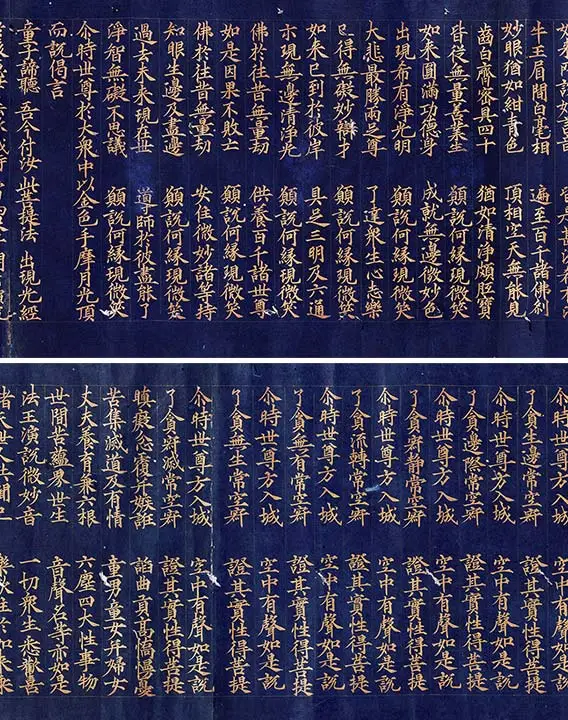 牛王眉間白毫相 遍至百千諸佛刹
妙眼猶如紺青色 頂相空天無能見
齒白齊密具四十 猶如清淨頗胝寶
昔從無量善業生 願說何緣現微笑
如來圓滿功德身 成就無邊微妙色
出現希有淨光明 願說何緣現微笑
大悲最勝兩之尊 了達衆生心志樂
已得無礙妙辯才 願說何緣現微笑
如來已到於彼岸 具足三明及六通
示現無邊清淨光 願說何緣現微笑
佛於往昔無量劫 供養百千諸世尊
如是因果不敗亡 願說何緣現微笑
佛於往昔無量劫 安住微妙諸等持
知眼生邊及盡邊 願說何緣現微笑
過去未來現在世 導師於彼盡能了
淨智無礙不思議 願說何緣現微笑
尒時世尊於大衆中以金色手摩月光頂
而說偈言
童子諦聽 吾今付汝 此菩提法 出現光經
尒時世尊方入城 空中有聲如是說
了貪生邊常空寂 證其實性得菩提
尒時世尊方入城 空中有聲如是說
了貪邊際常空寂 證其實性得菩提
尒時世尊方入城 空中有聲如是說
了貪寂靜常空寂 證其實性得菩提
尒時世尊方入城 空中有聲如是說
了貪流轉常空寂 證其實性得菩提
尒時世尊方入城 空中有聲如是說
了貪無有常空寂 證其實性得菩提
尒時世尊方入城 空中有聲如是說
了貪無生常空寂 證其實性得菩提
尒時世尊方入城 空中有聲如是說
了貪寂滅常空寂 證其實性得菩提
瞋癡忿覆并嫉誑 諂曲貢高憍慢害
苦集滅道及有情 童男童女并婦女
丈夫養育乘六根 六塵四大性事物
世間善蘊 世生 音聲名等亦如是
法王演說微妙音 一切衆生悉歡喜